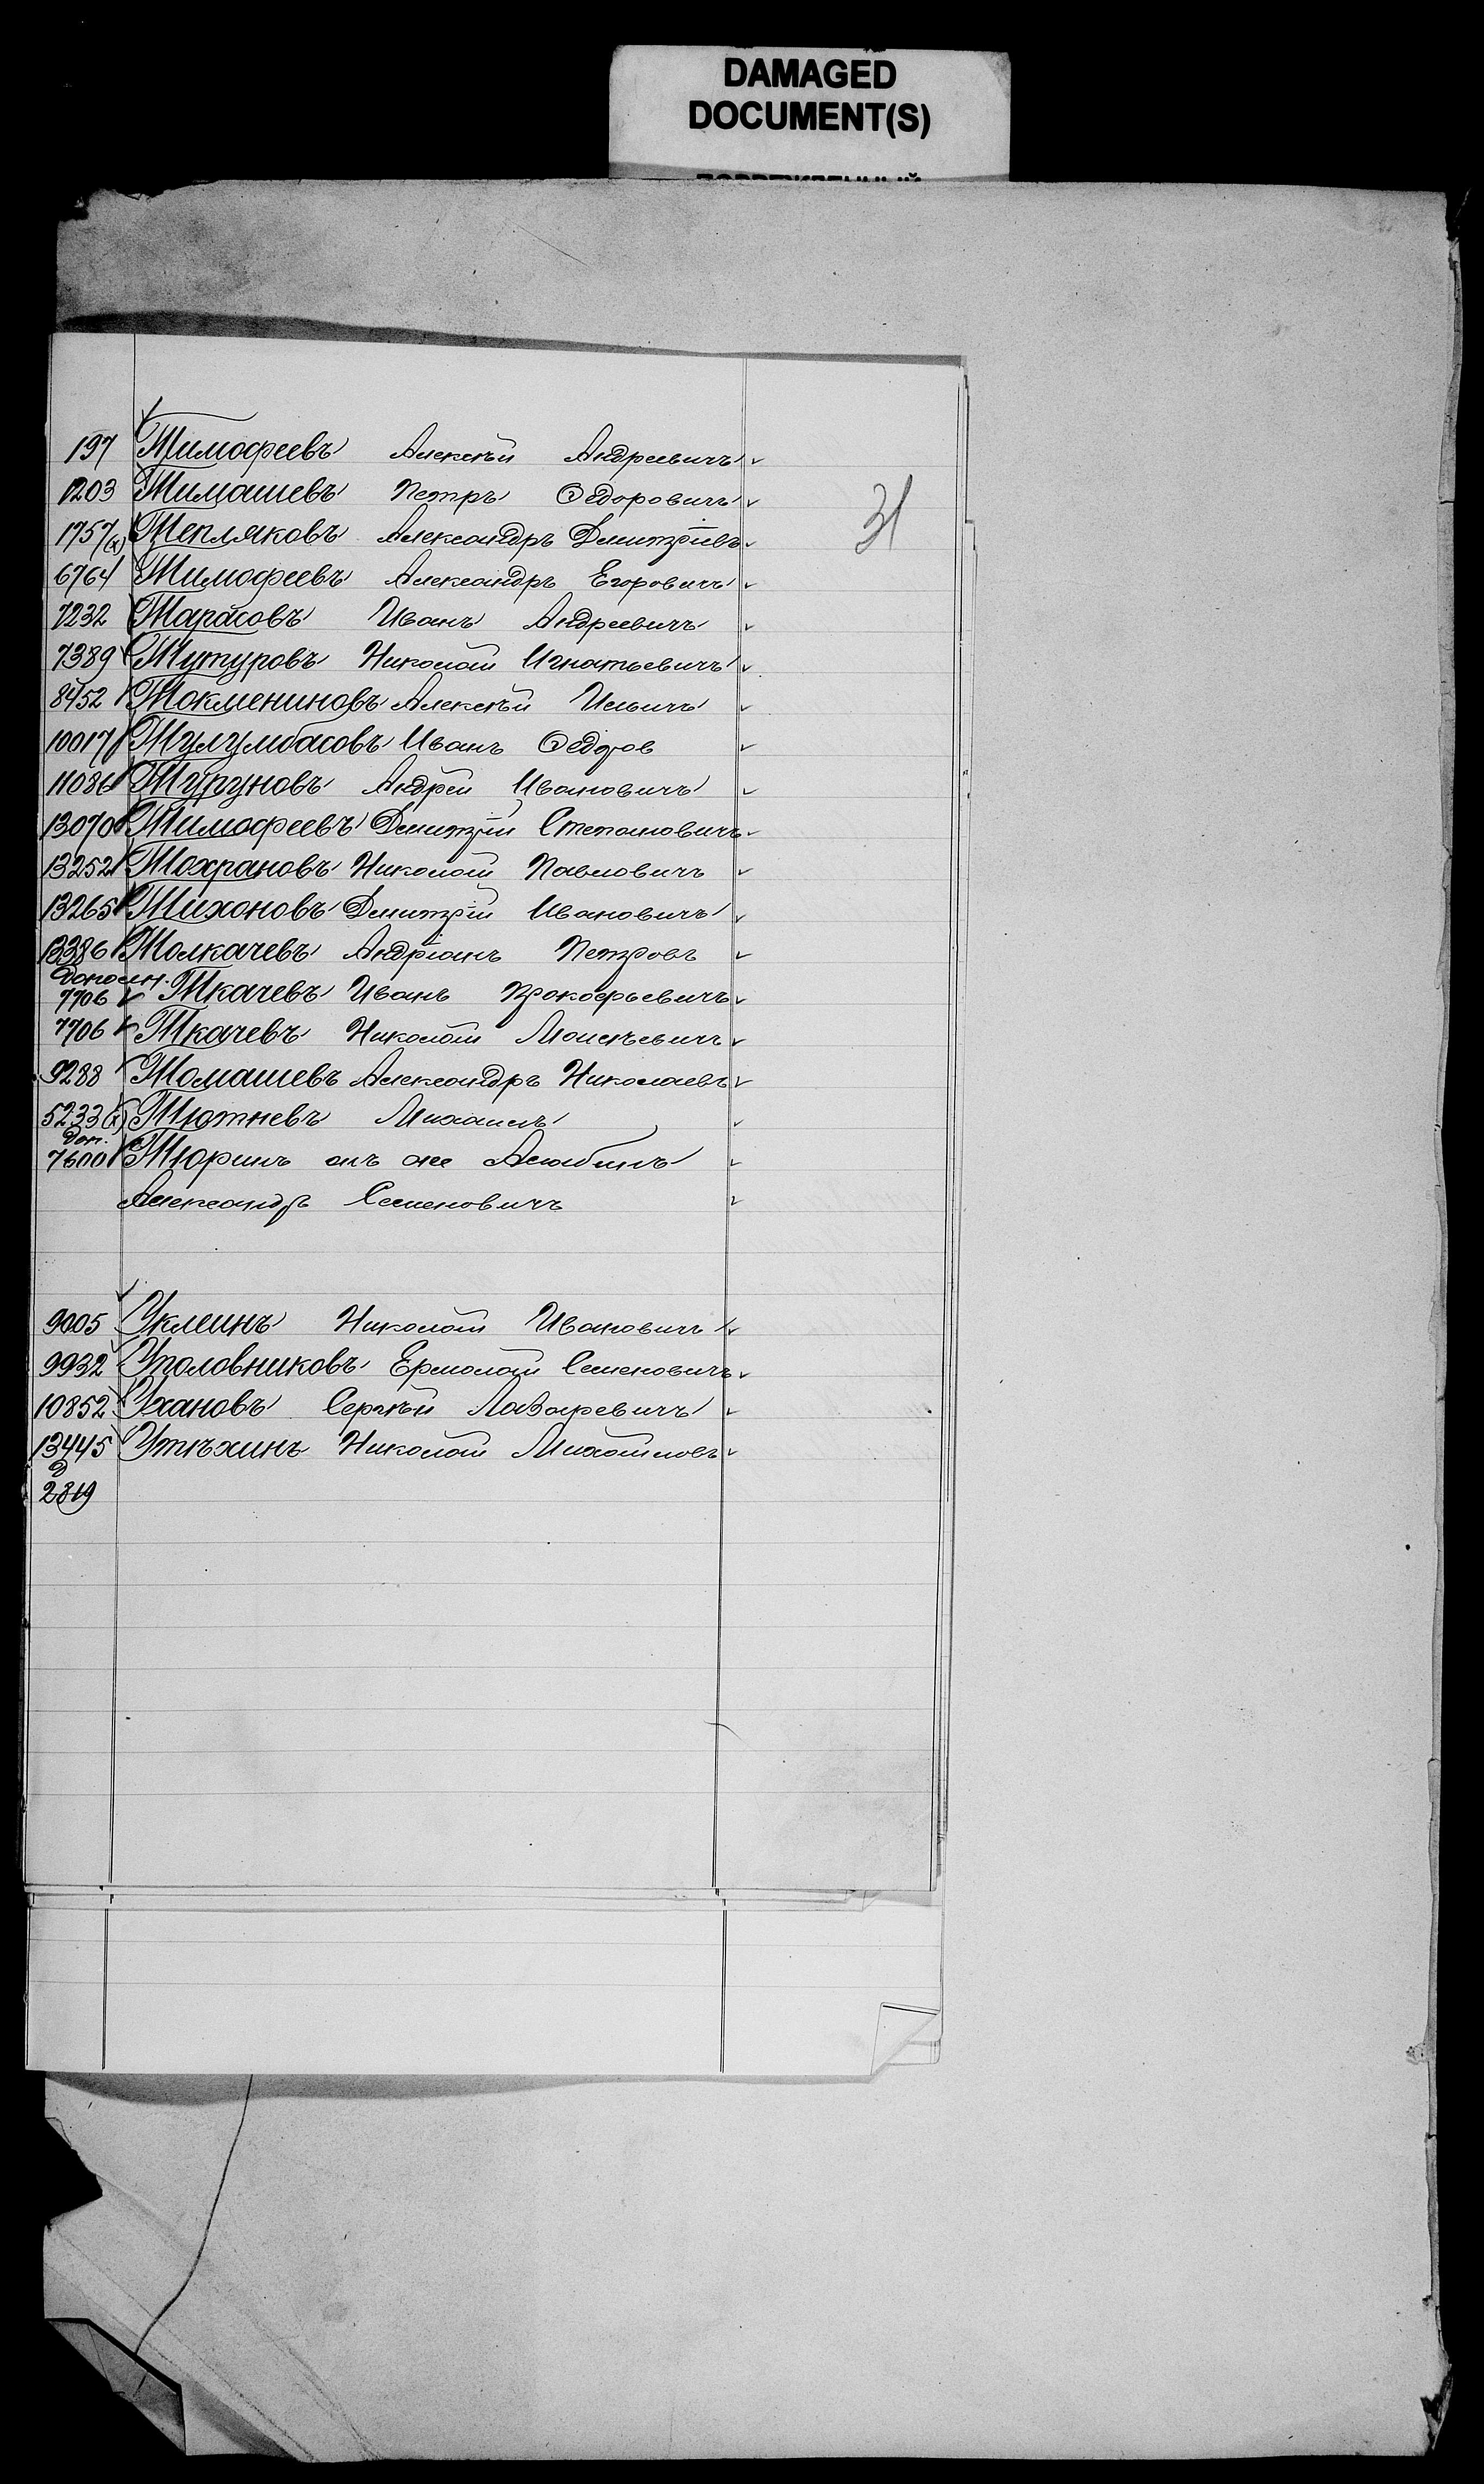 DAMAGED
DOCUMENT(S)
31
197 Тимофеевъ Алексѣй Андреевичъ
1203 Тимашевъ Петръ Ѳедоровичъ
1757 (х) Тепляковъ Александръ Дмитріевъ
6764 Тимофеевъ Александръ Егоровичъ
7232 Тарасовъ Иванъ Андреевичъ
7389 Тутуровъ Николай Игнатьевичъ
8452 Токмениновъ Алексѣй Ильичъ
10017 Тулумбасовъ Иванъ Ѳедоров
11086 Туруновъ Андрей Ивановичъ
13070 Тимофеевъ Дмитрій Степановичъ
13252 Тохрановъ Николай Павловичъ
13265 Тихоновъ Дмитрій Ивановичъ
13386 Толкачевъ Андріанъ Петровъ
Дополн.
7706 Ткачевъ Иванъ Прокофьевичъ
7706 Ткачевъ Николай Моисѣевичъ
9288 Томашевъ Александръ Николаевъ
5233 (х) Тютневъ Михаилъ
Доп.
7600 Тюринъ онъ же Алюбинъ
Александръ Семеновичъ
9005 Уклеинъ Николай Ивановичъ
9932 Уполовниковъ Ермолай Семеновичъ
10852 Ухановъ Сергѣй Лазаревичъ
13445 Утѣхинъ Николай Михайловъ
Д
2819